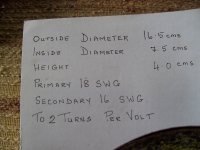 Outside Diameter 16.5 cms
Inside Diameter 7.5 cms
Height 4.0 cms
Primary 18 SWG
Secondary 16 SWG
To 2 Turns Per Volt